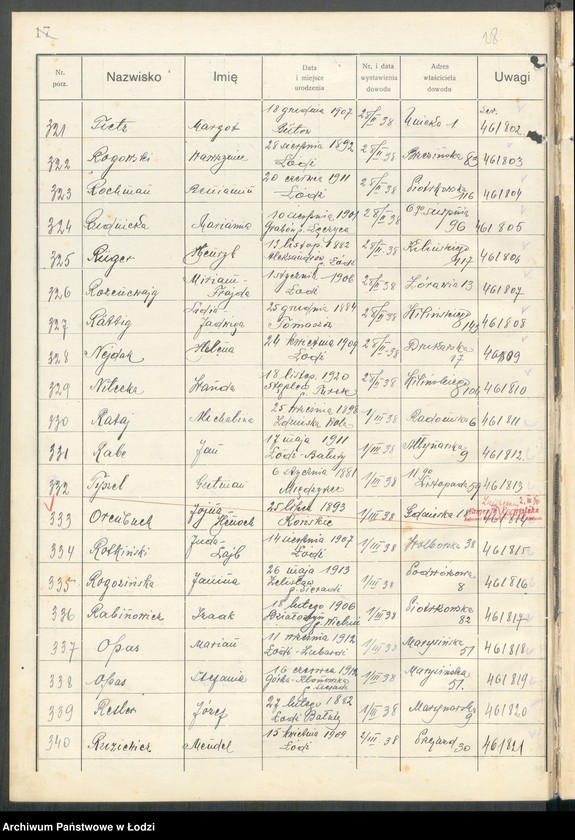 17
28
Nr. porz. Nazwisko Imię Data i miejsce urodzenia Nr. i data wystawienia dowodu Adres właściciela dowodu Uwagi
18 grudnia 1907 Ser.
321 Margot 28/II 38 1 461802
28 sierpnia 1892
322 Rogowski Wawrzyniec Łódź 28/II 38 Brzezińska 83 461803
20 czerwca 1911
323 Rochman Łódź 28/II 38 Piotrkowska 116 461804
10 sierpnia 1901 6go sierpnia
324 Rudnicka Marianna Grabów p. Łęczyca 28/II 38 96 461805
13 listop. 1882
325 Rüger Henryk Aleksandrów p. Łódź 28/II 38 Kilińskiego 117 461806
Miriam- 1 stycznik 1906
326 Rozencwajg Frajda Łódź 28/II 38 Żórawia 13 461807
Lidia- 25 grudnia 1884
327 Rättig Jadwiga Tomaszów 28/II 38 Kilińskiego 461808
24 kwietnia 1909
328 Nejdak Helena Łódź 28/II 38 Drukarska 17 461809
18 listop. 1920
329 Nitecka Wanda 28/II 38 Kilińskiego 461810
25 września 1898
330 Rataj Michalina Zduńska Wola 1/III 38 Radomska 6 461811
17 maja 1911
331 Rabe Jan Łódź-Bałuty 1/III 38 Młynarska 9 461812
6 stycznia 1881 11 go
332 Tyszel Gutman Międzyrzec 1/III 38 Listopada 59 461813
Jojna- 25 lipca 1893
333 Orenbuch Henoch Końskie 1/III 38 Gdańska 461814
Juda- 14 sierpnia 1907
334 Rotkiński Lajb Łódź 1/III 38 Wolborska 38 461815
26 maja 1913
335 Rogozińska Janina Zelisław p. Sieradz 1/III 38 Podwórkowa 8 461816
18 lutego 1906
336 Rabinowicz Izaak Działoszyn p. Wieluń 1/III 38 Piotrkowska 82 461817
11 września 1912
337 Opas Marian Łódź-Lubardź 1/III 38 Marysińska 51 461818
16 czerwca 1912
338 Opas Stefania p. Sieradz 1/III 38 Marysińska 51. 461819
27 lutego 1882
339 Resler Józef Łódź Bałuty 1/III 38 9 461820
15 kwietnia 1909
340 Ruziewicz Mendel Łódź 2/III 38 30 461821
Archiwum Państwowe w Łodzi